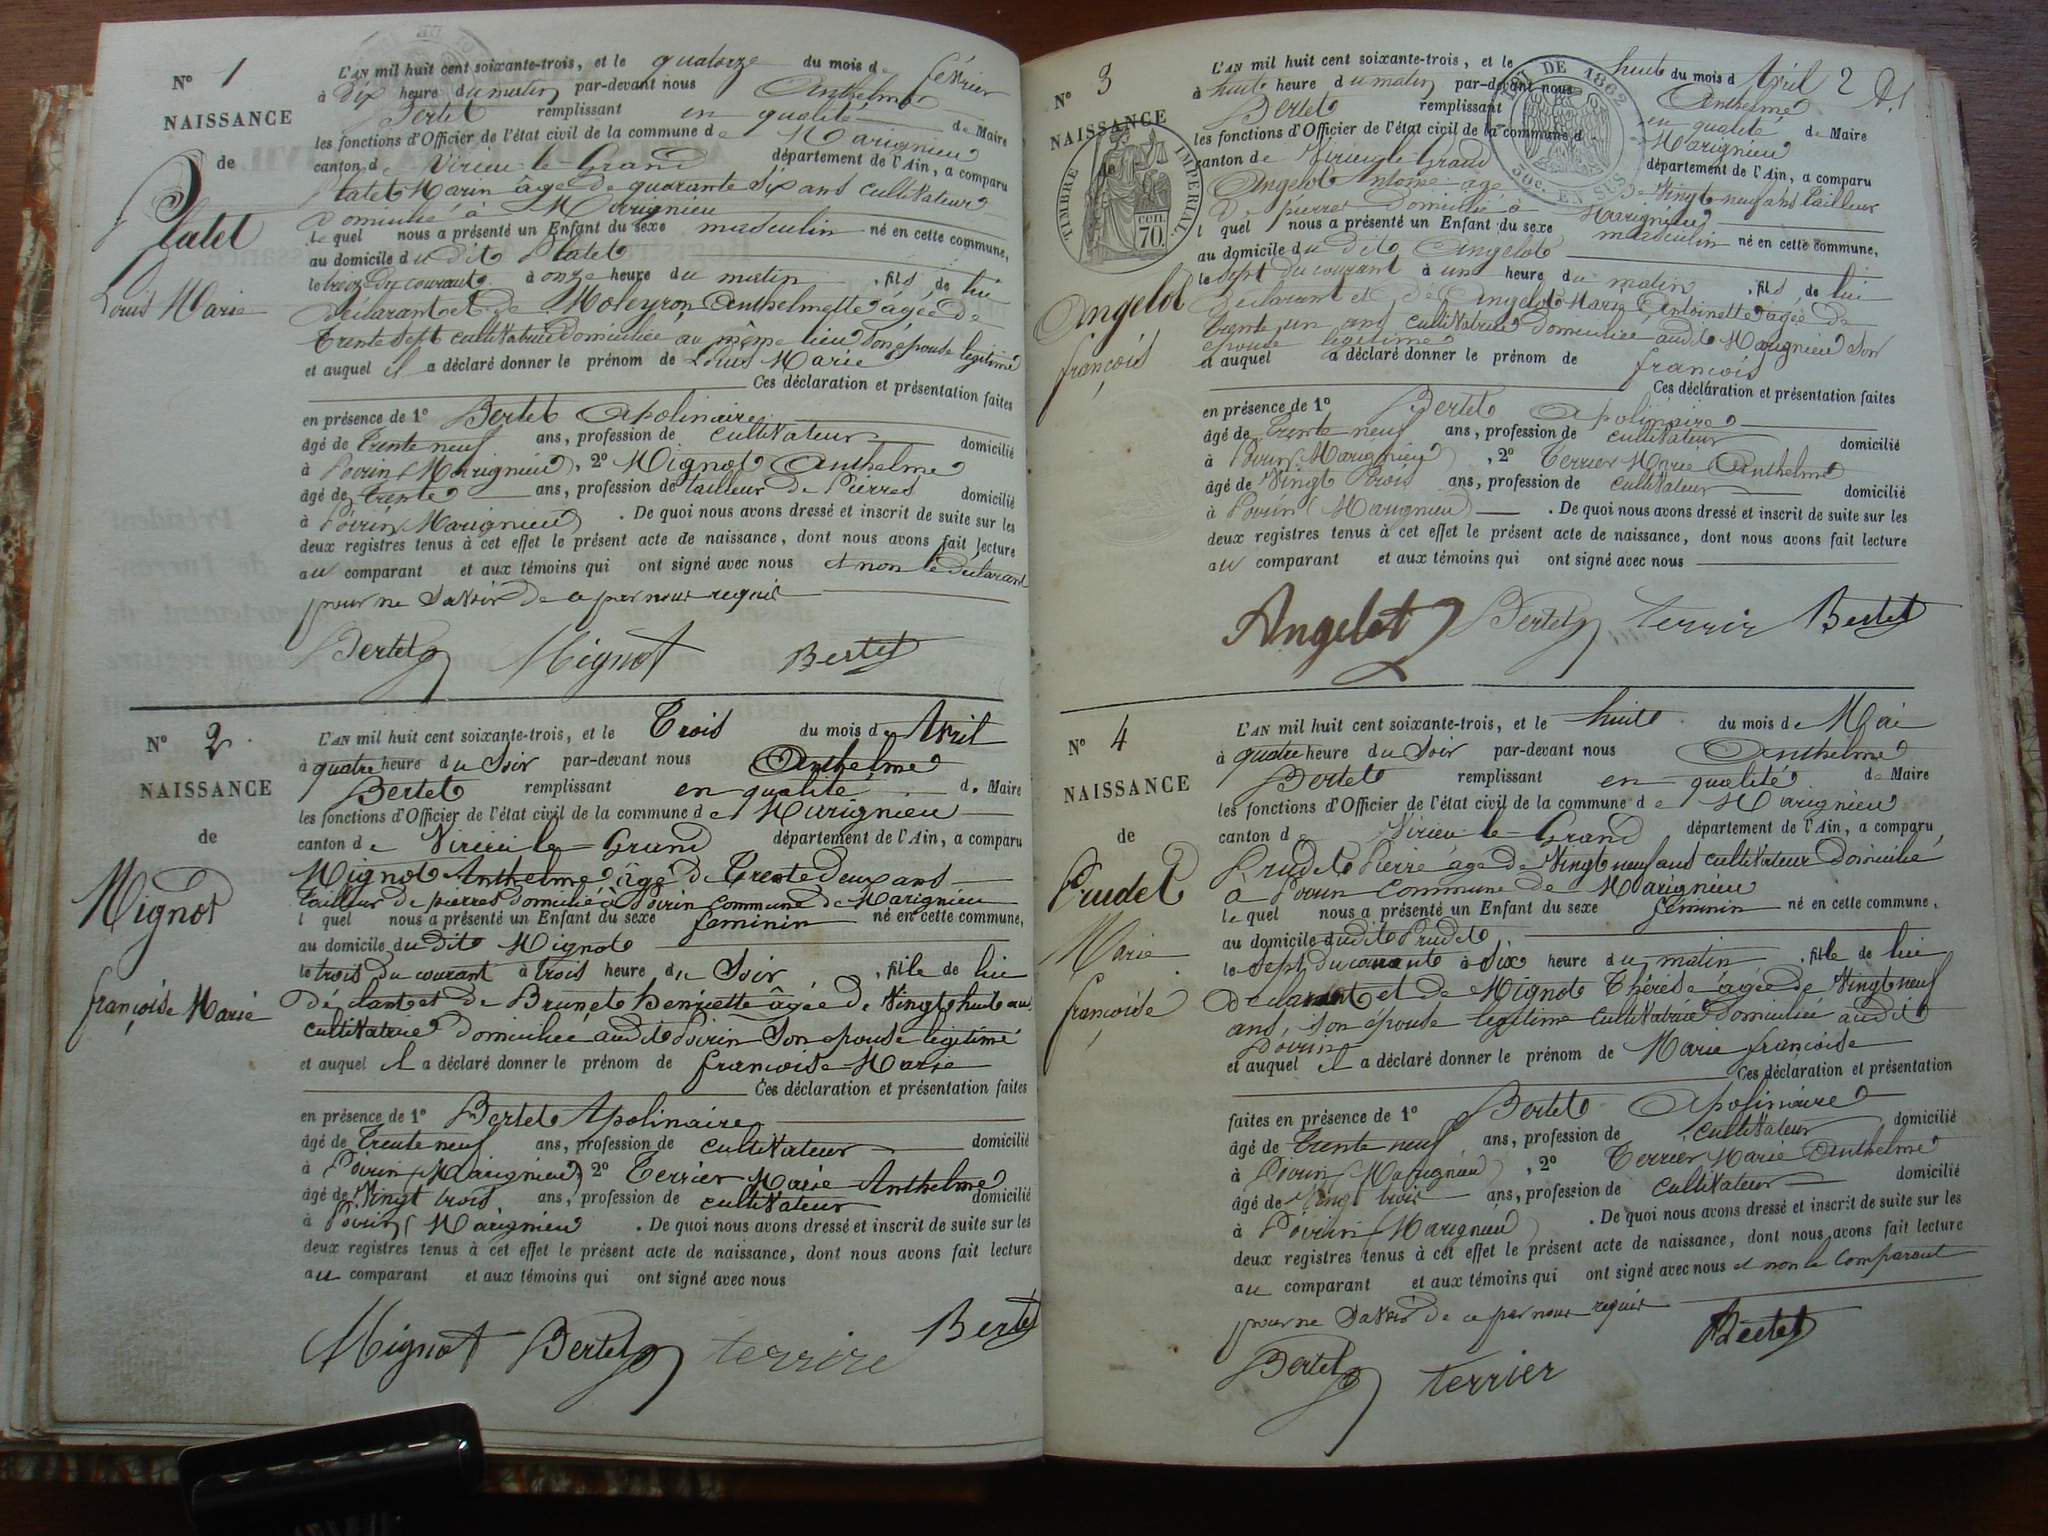 N° 1
NAISSANCE
de
Platet
Louis Marie
L'AN mil huit cent soixante-trois, et le quatorze du mois de février
à dix heure du matin par-devant nous Anthelme
Bertet remplissant en qualité de Maire
les fonctions d'Officier de l'état civil de la commune de Marignieu
canton de Virieu-le-Grand département de l'Ain, a comparu
Platet Marin âgé de quarante six ans cultivateur
domicilié à Marignieu
lequel nous a présenté un Enfant du sexe masculin né en cette commune,
au domicile du dit Platet
le treize du courant à onze heure du matin, fils de lui
déclarant et de Moleyron Anthelmette âgée de
trente sept cultivatrice domiciliée au même lieu son épouse légitime
et auquel il a déclaré donner le prénom de Louis Marie
Ces déclaration et présentation faites
en présence de 1° Bertet Apolinaire
âgé de trente neuf ans, profession de cultivateur domicilié
à Poirin (Marignieu), 2° Mignot Anthelme
âgé de trente ans, profession de tailleur de Pierres domicilié
à Poirin (Marignieu). De quoi nous avons dressé et inscrit de suite sur les
deux registres tenus à cet effet le présent acte de naissance, dont nous avons fait lecture
au comparant et aux témoins qui ont signé avec nous et non le déclarant
pour ne savoir de ce par nous requis
Bertet Mignot Bertet
N° 2
NAISSANCE
de
Mignot
françoise Marie
L'AN mil huit cent soixante-trois, et le Trois du mois de Avril
à quatre heure du Soir par-devant nous Anthelme
Bertet remplissant en qualité de Maire
les fonctions d'Officier de l'état civil de la commune de Marignieu
canton de Virieu le Grand département de l'Ain, a comparu
Mignot Anthelme âgé de Trente Deux ans
tailleur de pierres domicilié à Poirin commune de Marignieu
l quel nous a présenté un Enfant du sexe feminin né en cette commune,
au domicile du dit Mignot
le trois du courant à trois heure du Soir, fille de lui
déclarant et de Brunet Henriette âgée de Vingt huit ans
cultivatrice domiciliée audit Poirin Son épouse légitime
et auquel il a déclaré donner le prénom de françoise Marie
Ces déclaration et présentation faites
en présence de 1° Bertet Apolinaire
âgé de Trente neuf ans, profession de cultivateur domicilié
à Poirin (Marignieu) 2° Terrier Marie Anthelme
âgé de Vingt trois ans, profession de cultivateur domicilié
à Poirin (Marignieu. De quoi nous avons dressé et inscrit de suite sur les
deux registres tenus à cet effet le présent acte de naissance, dont nous avons fait lecture
au comparant et aux témoins qui ont signé avec nous
Mignot Bertet terrire Bertet
2
N° 3
NAISSANCE
de
TIMBRE IMPERIAL
CEN. 70.
LOI DE 1862
50c. EN SUS
Angelot
françois
L'AN mil huit cent soixante-trois, et le huit du mois d Avril
à huit heure du matin par-devant nous Anthelme
Bertet remplissant en qualité de Maire
les fonctions d'Officier de l'état civil de la commune d Marignieu
canton de Virieu-le-Grand département de l'Ain, a comparu
Angelot Antoine âgé de Vingt neuf ans tailleur
de pierres domicilié à Marignieu
l quel nous a présenté un Enfant du sexe masculin né en cette commune,
au domicile du dit Angelot
le sept du courant à un heure du matin, fils de lui
déclarant et de Angelot Marie Antoinette âgée de
trente un ans cultivatrice domiciliée audit Marignieu son
épouse légitime
et auquel a déclaré donner le prénom de françois
Ces déclaration et présentation faites
en présence de 1° Bertet Apolinaire
âgé de trente neuf ans, profession de cultivateur domicilié
à Poirin (Marignieu), 2° Terrier Marie Anthelme
âgé de Vingt trois ans, profession de cultivateur domicilié
à Poirin (Marignieu). De quoi nous avons dressé et inscrit de suite sur les
deux registres tenus à cet effet le présent acte de naissance, dont nous avons fait lecture
au comparant et aux témoins qui ont signé avec nous
Angelot Bertet terrir Bertet
N° 4
NAISSANCE
de
Prudet
Marie
françoise
L'AN mil huit cent soixante-trois, et le huit du mois de Mai
à quatre heure du Soir par-devant nous Anthelme
Bertet remplissant en qualité de Maire
les fonctions d'Officier de l'état civil de la commune de Marignieu
canton de Virieu-le-Grand département de l'Ain, a comparu
Prudet Pierre âgé de Vingt neuf ans cultivateur domicilié
à Poirin commune de Marignieu
le quel nous a présenté un Enfant du sexe féminin né en cette commune,
au domicile dudit Prudet
le sept du courant à six heure du matin, fille de lui
déclarant et de Mignot Thérèse âgée de Vingt neuf
ans, son épouse légitime cultivatrice domiciliée audit
Poirin
et auquel il a déclaré donner le prénom de Marie françoise
Ces déclaration et présentation
faites en présence de 1° Bertet Apolinaire
âgé de trente neuf ans, profession de cultivateur domicilié
à Poirin (Marignieu), 2° Terrier Marie Anthelme
âgé de Vingt trois ans, profession de cultivateur domicilié
à Poirin (Marignieu). De quoi nous avons dressé et inscrit de suite sur les
deux registres tenus à cet effet le présent acte de naissance, dont nous avons fait lecture
au comparant et aux témoins qui ont signé avec nous et non le comparant
pour ne savoir de ce par nous requis
Bertet terrier Bertet